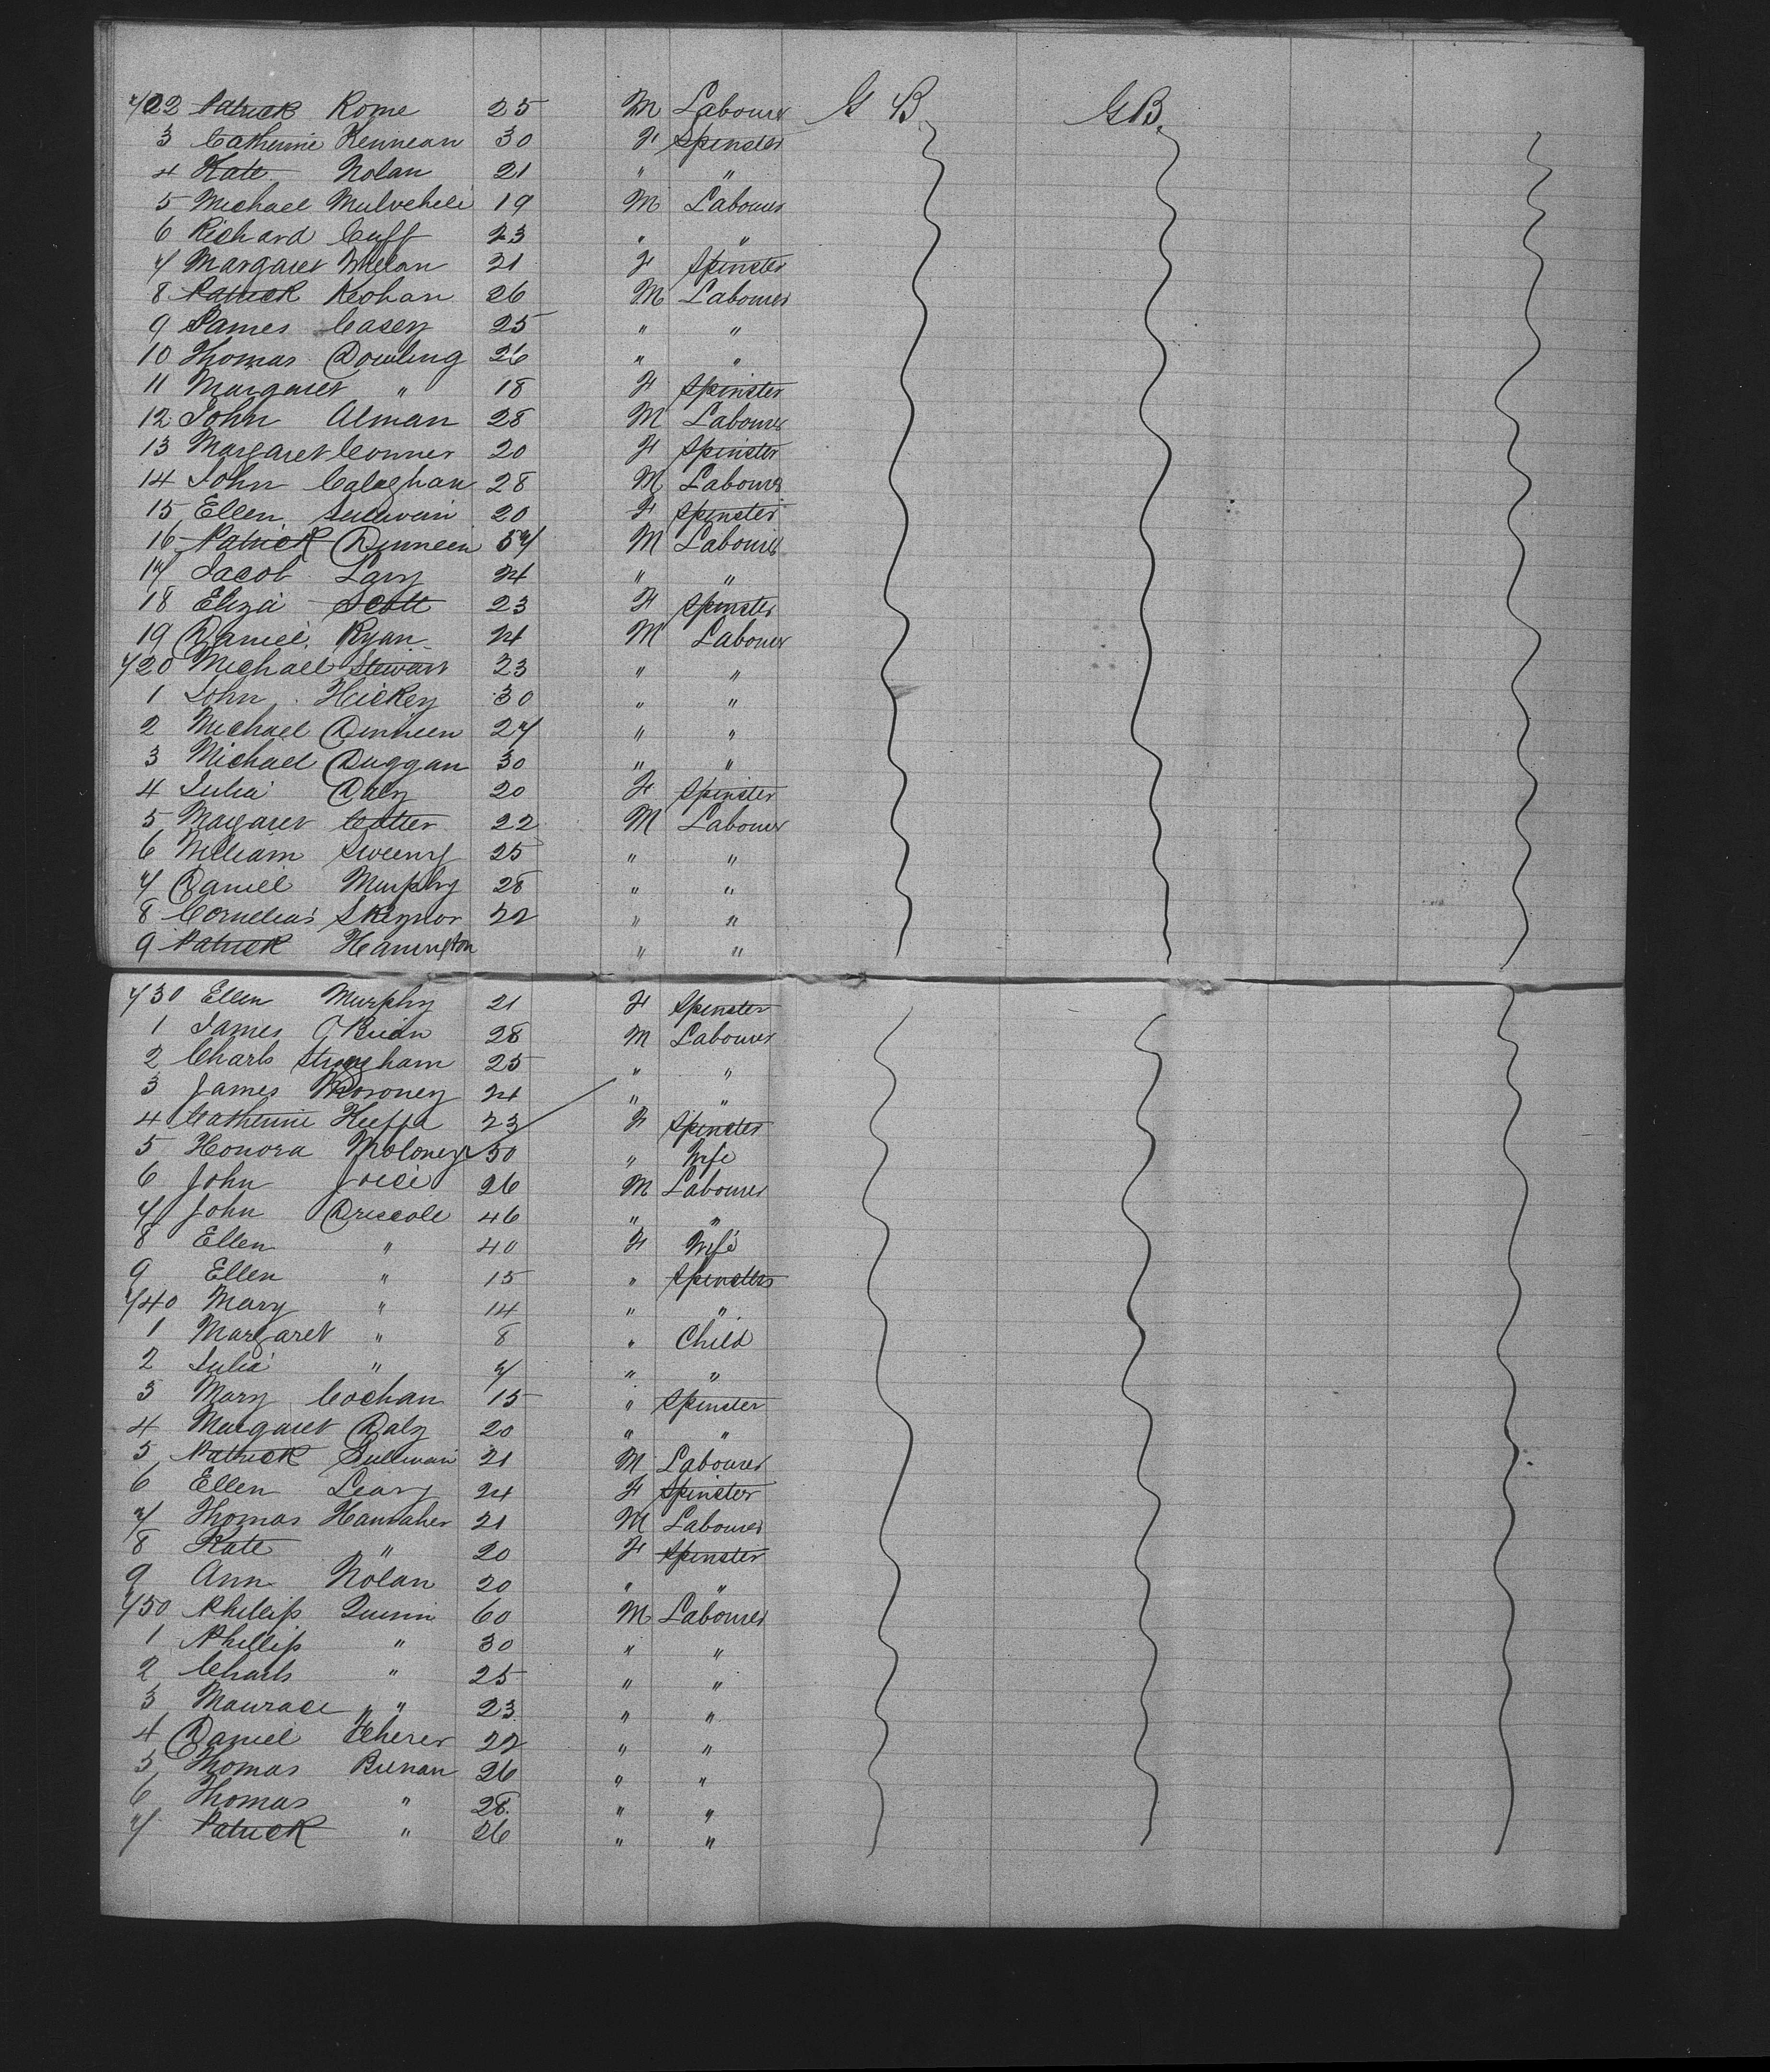 702 Patrick Rome 25 M Labourer G B GB
3 Catherine Kennean 30 F Spinster
4 Kate Nolan 21 " "
5 Michael Mulvehill 19 M Labourer
6 Richard Cuff 23 " "
7 Margaret Whelan 21 F Spinster
8 Patrick Keohan 26 M Labourer
9 James Casey 25 " "
10 Thomas Dowling 26 " "
11 Margaret " 18 F Spinster
12 John Alman 28 M Labourer
13 Margaret Conner 20 F Spinster
14 John Calaghan 28 M Labourer
15 Ellen Sullivan 20 F Spinster
16 Patrick Dinneen 57 M Labourer
17 Jacob Lary 24 " "
18 Eliza Scott 23 F Spinster
19 Daniel Ryan 24 M Labourer
720 Michael Stewart 23 " "
1 John Hickey 30 " "
2 Michael Dinneen 27 " "
3 Michael Duggan 30 " "
4 Julia Daly 20 F Spinster
5 Magaret Cotter 22 M Labourer
6 William Sweeny 25 " "
7 Daniel Murphy 28 " "
8 Cornelius 22 " "
9 Patrick Hanington " "
730 Ellen Murphy 21 F Spinster
1 James O'Brien 28 M Labourer
2 Charls 25 " "
3 James Moroney 24 " "
4 Catherine Keeffa 23 F Spinster
5 Honora Moloney 50 " Wife
6 John Joice 26 M Labourer
7 John Driscoll 46 " "
8 Ellen " 40 F Wife
9 Ellen " 15 " Spinsters
740 Mary " 14 " "
1 Margaret " 8 " Child
2 Julia " 7 " "
3 Mary Cochan 15 " Spinster
4 Margaret Daly 20 " "
5 Patrick Sullivan 21 M Labourer
6 Ellen Leary 24 F Spinster
7 Thomas Hanraher 21 M Labourer
8 Kate " 20 F Spinster
9 Ann Nolan 20 " "
750 Phillip Quinn 60 M Labourer
1 Phillip " 30 " "
2 Charls " 25 " "
3 Maurace " 23 " "
4 Daniel 22 " "
5 Thomas 26 " "
6 Thomas " 28 " "
7 Patrick " 26 " "